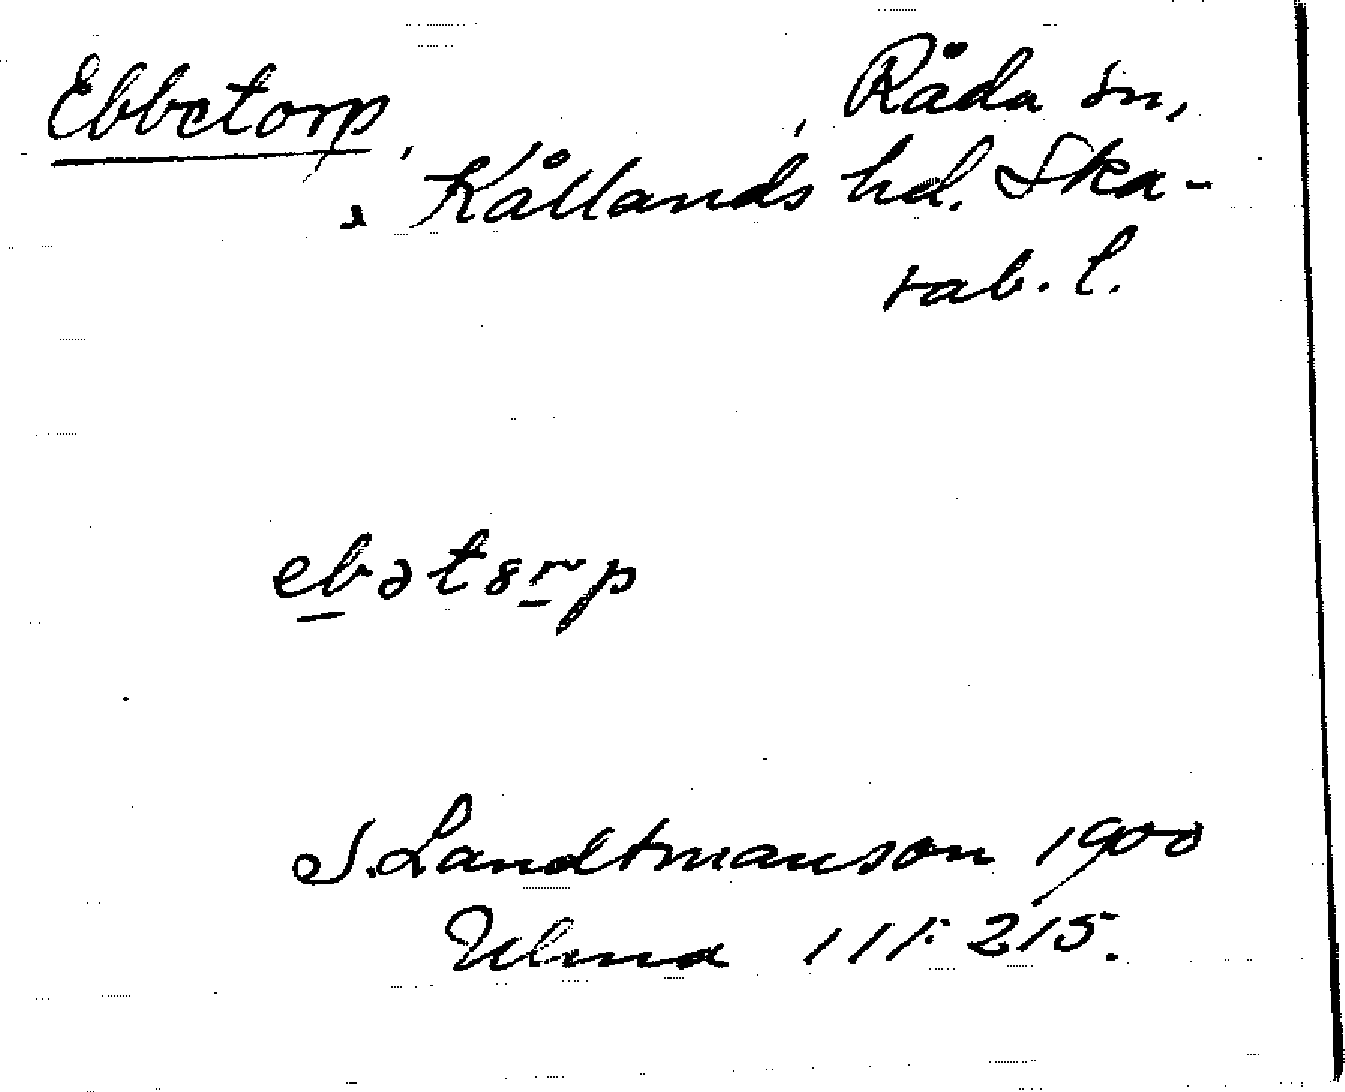 Ebbetorp, Råda sn,
Kållands hd. Ska-
rab. l.
ebətsrp
S. Landtmanson 1900
Ulma 111:215.